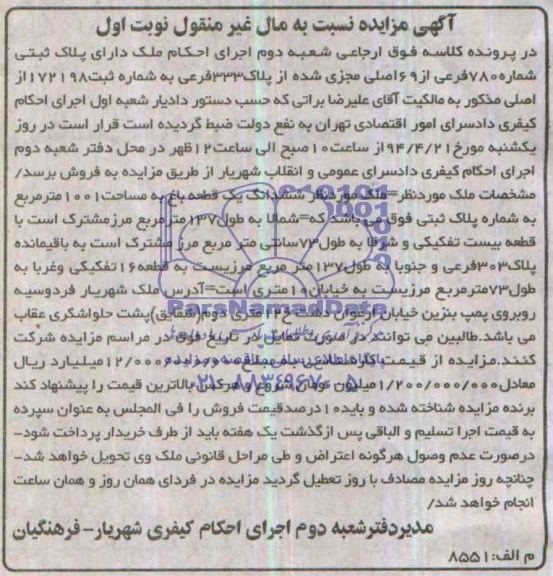 آگهی مزایده نسبت به مال غیر منقول نوبت اول
در پرونده کلاسه فوق ارجاعی شعبه دوم اجرای احکام ملک دارای پلاک ثبتی
شماره ۷۸۰فرعی از۶۹اصلی مجزی شده از پلاک۳۳۳فرعی به شماره ثبت۱۷۲۱۹۸از
اصلی مذکور به مالکیت آقای علیرضا براتی که حسب دستور دادیار شعبه اول اجرای احکام
کیفری دادسرای امور اقتصادی تهران به نفع دولت ضبط گردیده است قرار است در روز
یکشنبه مورخ۹۴/۴/۲۱از ساعت۱۰صبح الی ساعت۱۲ظهر در محل دفتر شعبه دوم
اجرای احکام کیفری دادسرای عمومی و انقلاب شهریار از طریق مزایده به فروش برسد/
مشخصات ملک موردنظر=ملک موردنظر ششدانگ یک قطعه باغ به مساحت۱۰۰۱مترمربع
به شماره پلاک ثبتی فوق می باشد که=شمالا به طول۱۳۷مترمربع مرزمشترک است با
قطعه بیست تفکیکی و شرقا به طول۷۳سانتی متر مربع مرز مشترک است به باقیمانده
پلاک۳۰۳فرعی و جنوبا به طول۱۳۷متر مربع مرزیست به قطعه۱۶تفکیکی وغربا به
طول۷۳مترمربع مرزیست به خیابان۱۰متری است=آدرس ملک شهریار فردوسیه
روبروی پمپ بنزین خیابان ارغوان دشت خ۱۲متری دوم(شقایق)پشت حلواشکری عقاب
می باشد.طالبین می توانند در صورت تمایل در تاریخ فوق در مراسم مزایده شرکت
کنند.مزایده از قیمت کارشناسی به مبلغ ۱۲/۰۰۰/۰۰۰/۰۰۰میلیارد ریال
معادل۱/۲۰۰/۰۰۰/۰۰۰میلیون تومان شروع و هرکس بالاترین قیمت را پیشنهاد کند
برنده مزایده شناخته شده و باید۱۰درصدقیمت فروش را فی المجلس به عنوان سپرده
به قیمت اجرا تسلیم و الباقی پس ازگذشت یک هفته باید از طرف خریدار پرداخت شود-
درصورت عدم وصول هرگونه اعتراض و طی مراحل قانونی ملک وی تحویل خواهد شد-
چنانچه روز مزایده مصادف با روز تعطیل گردید مزایده در فردای همان روز و همان ساعت
انجام خواهد شد/
مدیردفترشعبه دوم اجرای احکام کیفری شهریار- فرهنگیان
م الف:۸۵۵۱
ParsNamadData
۰۲۱-۸۸۳۴۹۶۷۰-۵